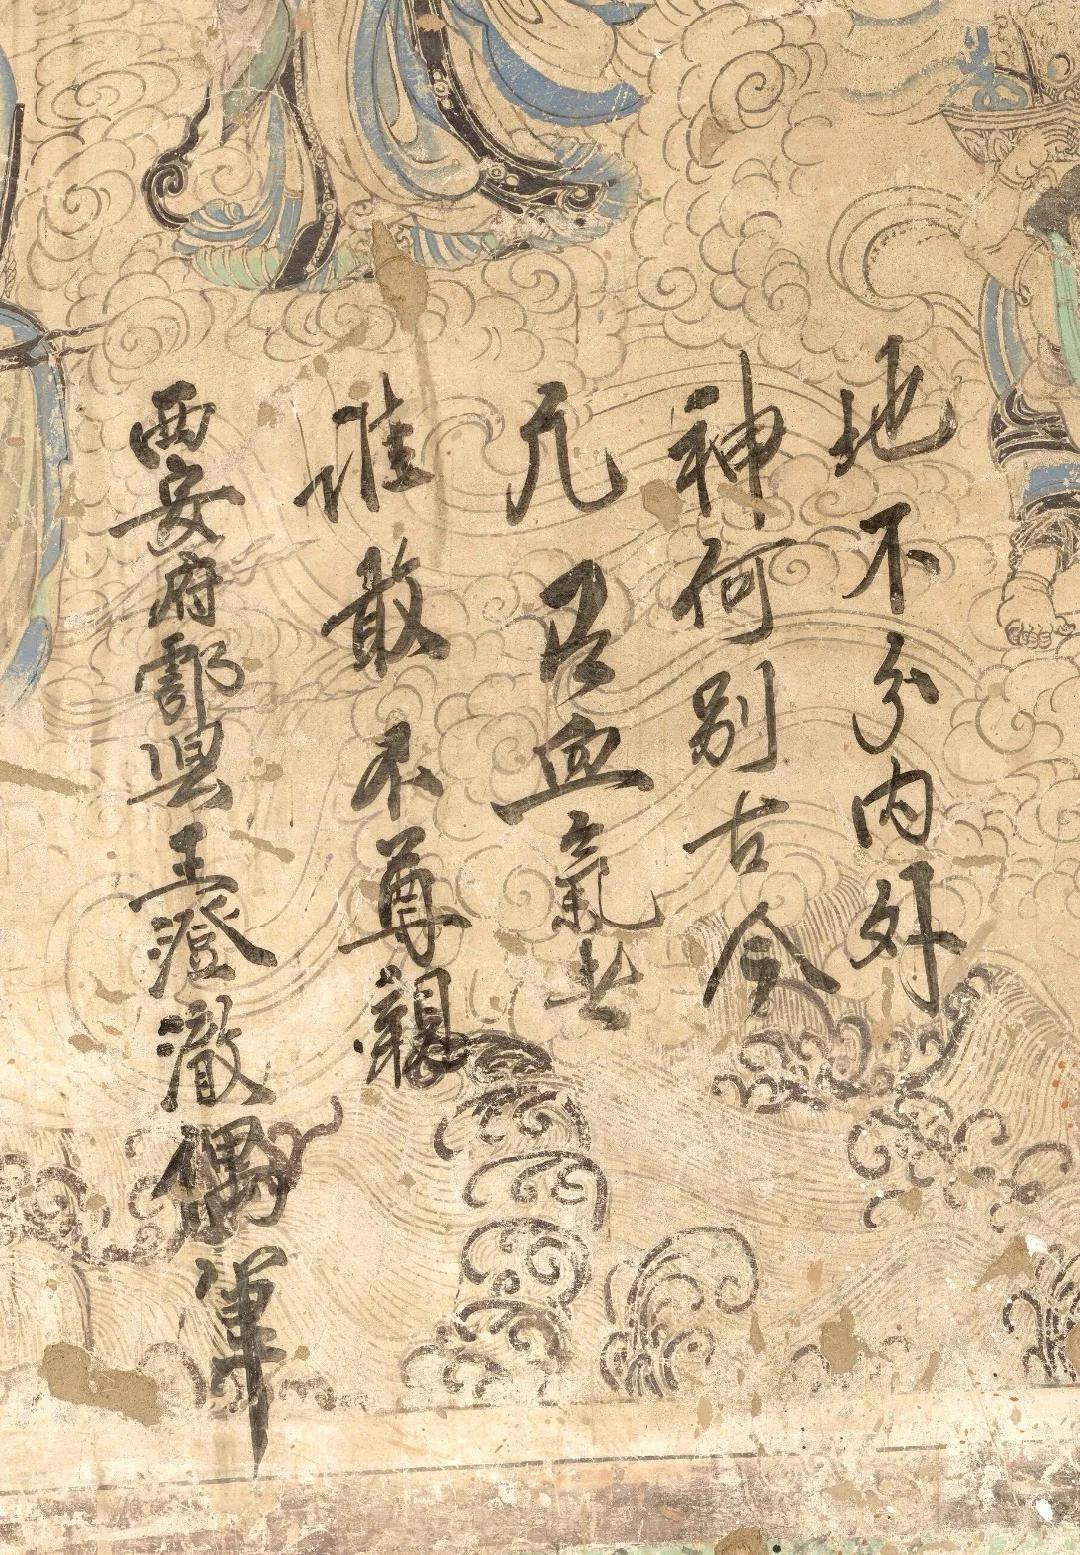 地不分内外
神何别古今
凡有血氣者
誰敢不尊親
西安府鄠县王澄澈偶筆